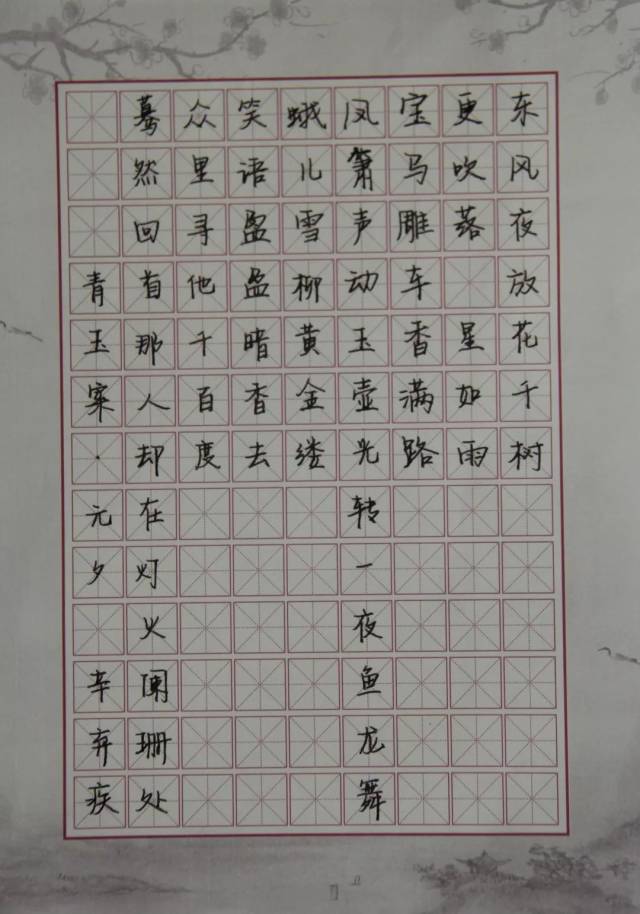 东风夜放花千树
更吹落 星如雨
宝马雕车香满路
凤箫声动玉壶光转一夜鱼龙舞
蛾儿雪柳黄金缕
笑语盈盈暗香去
众里寻他千百度
蓦然回首那人却在灯火阑珊处
青玉案·元夕 辛弃疾